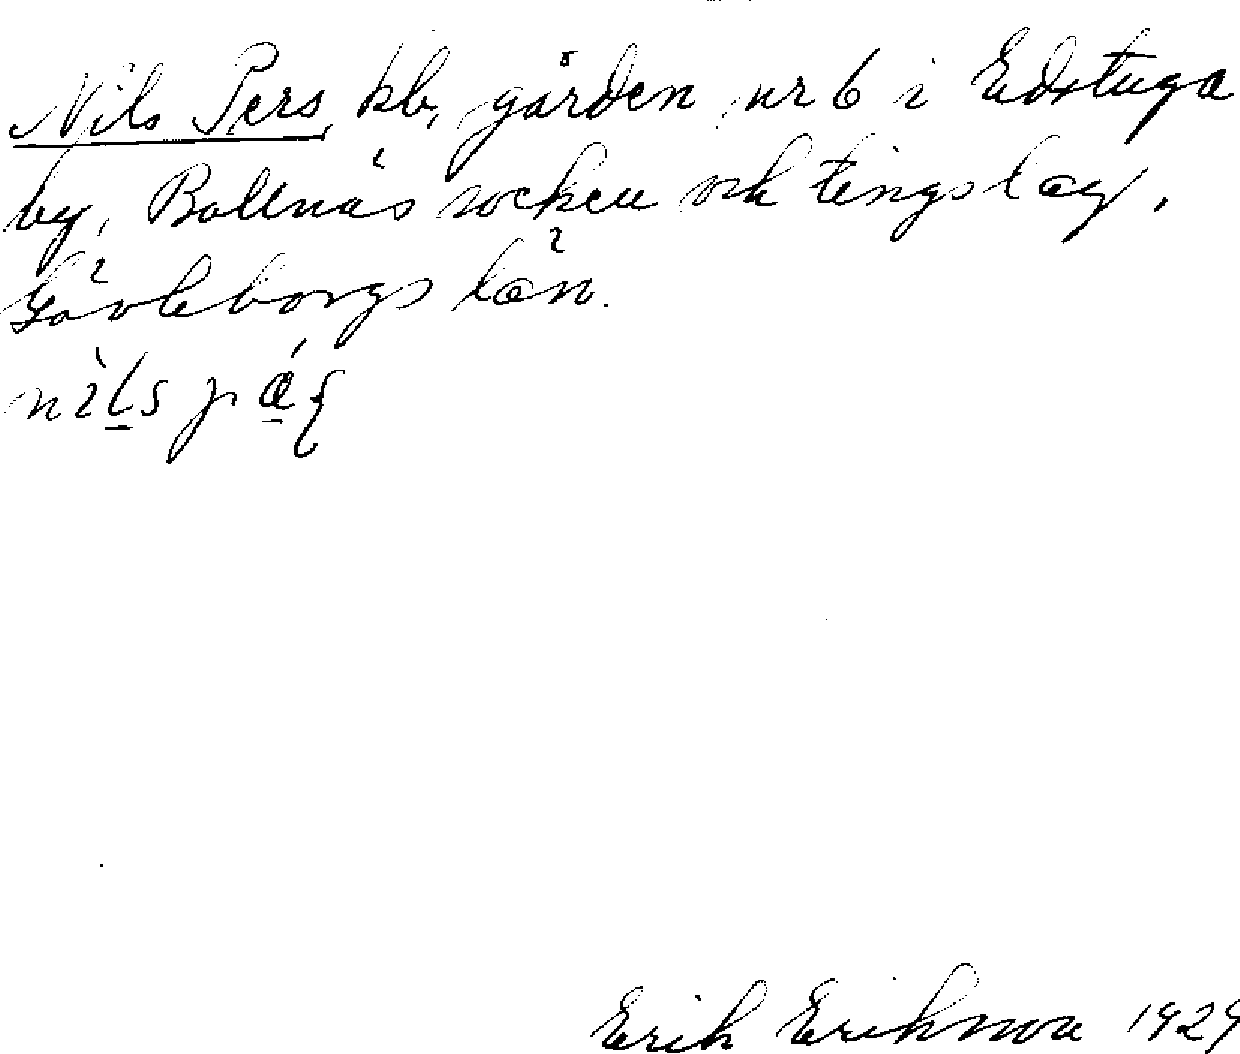 Nils Pers, kb, gården nr 6 i Edstuga
by, Bollnäs socken och tingslag,
Gävleborgs län.
Erik Eriksson 1929